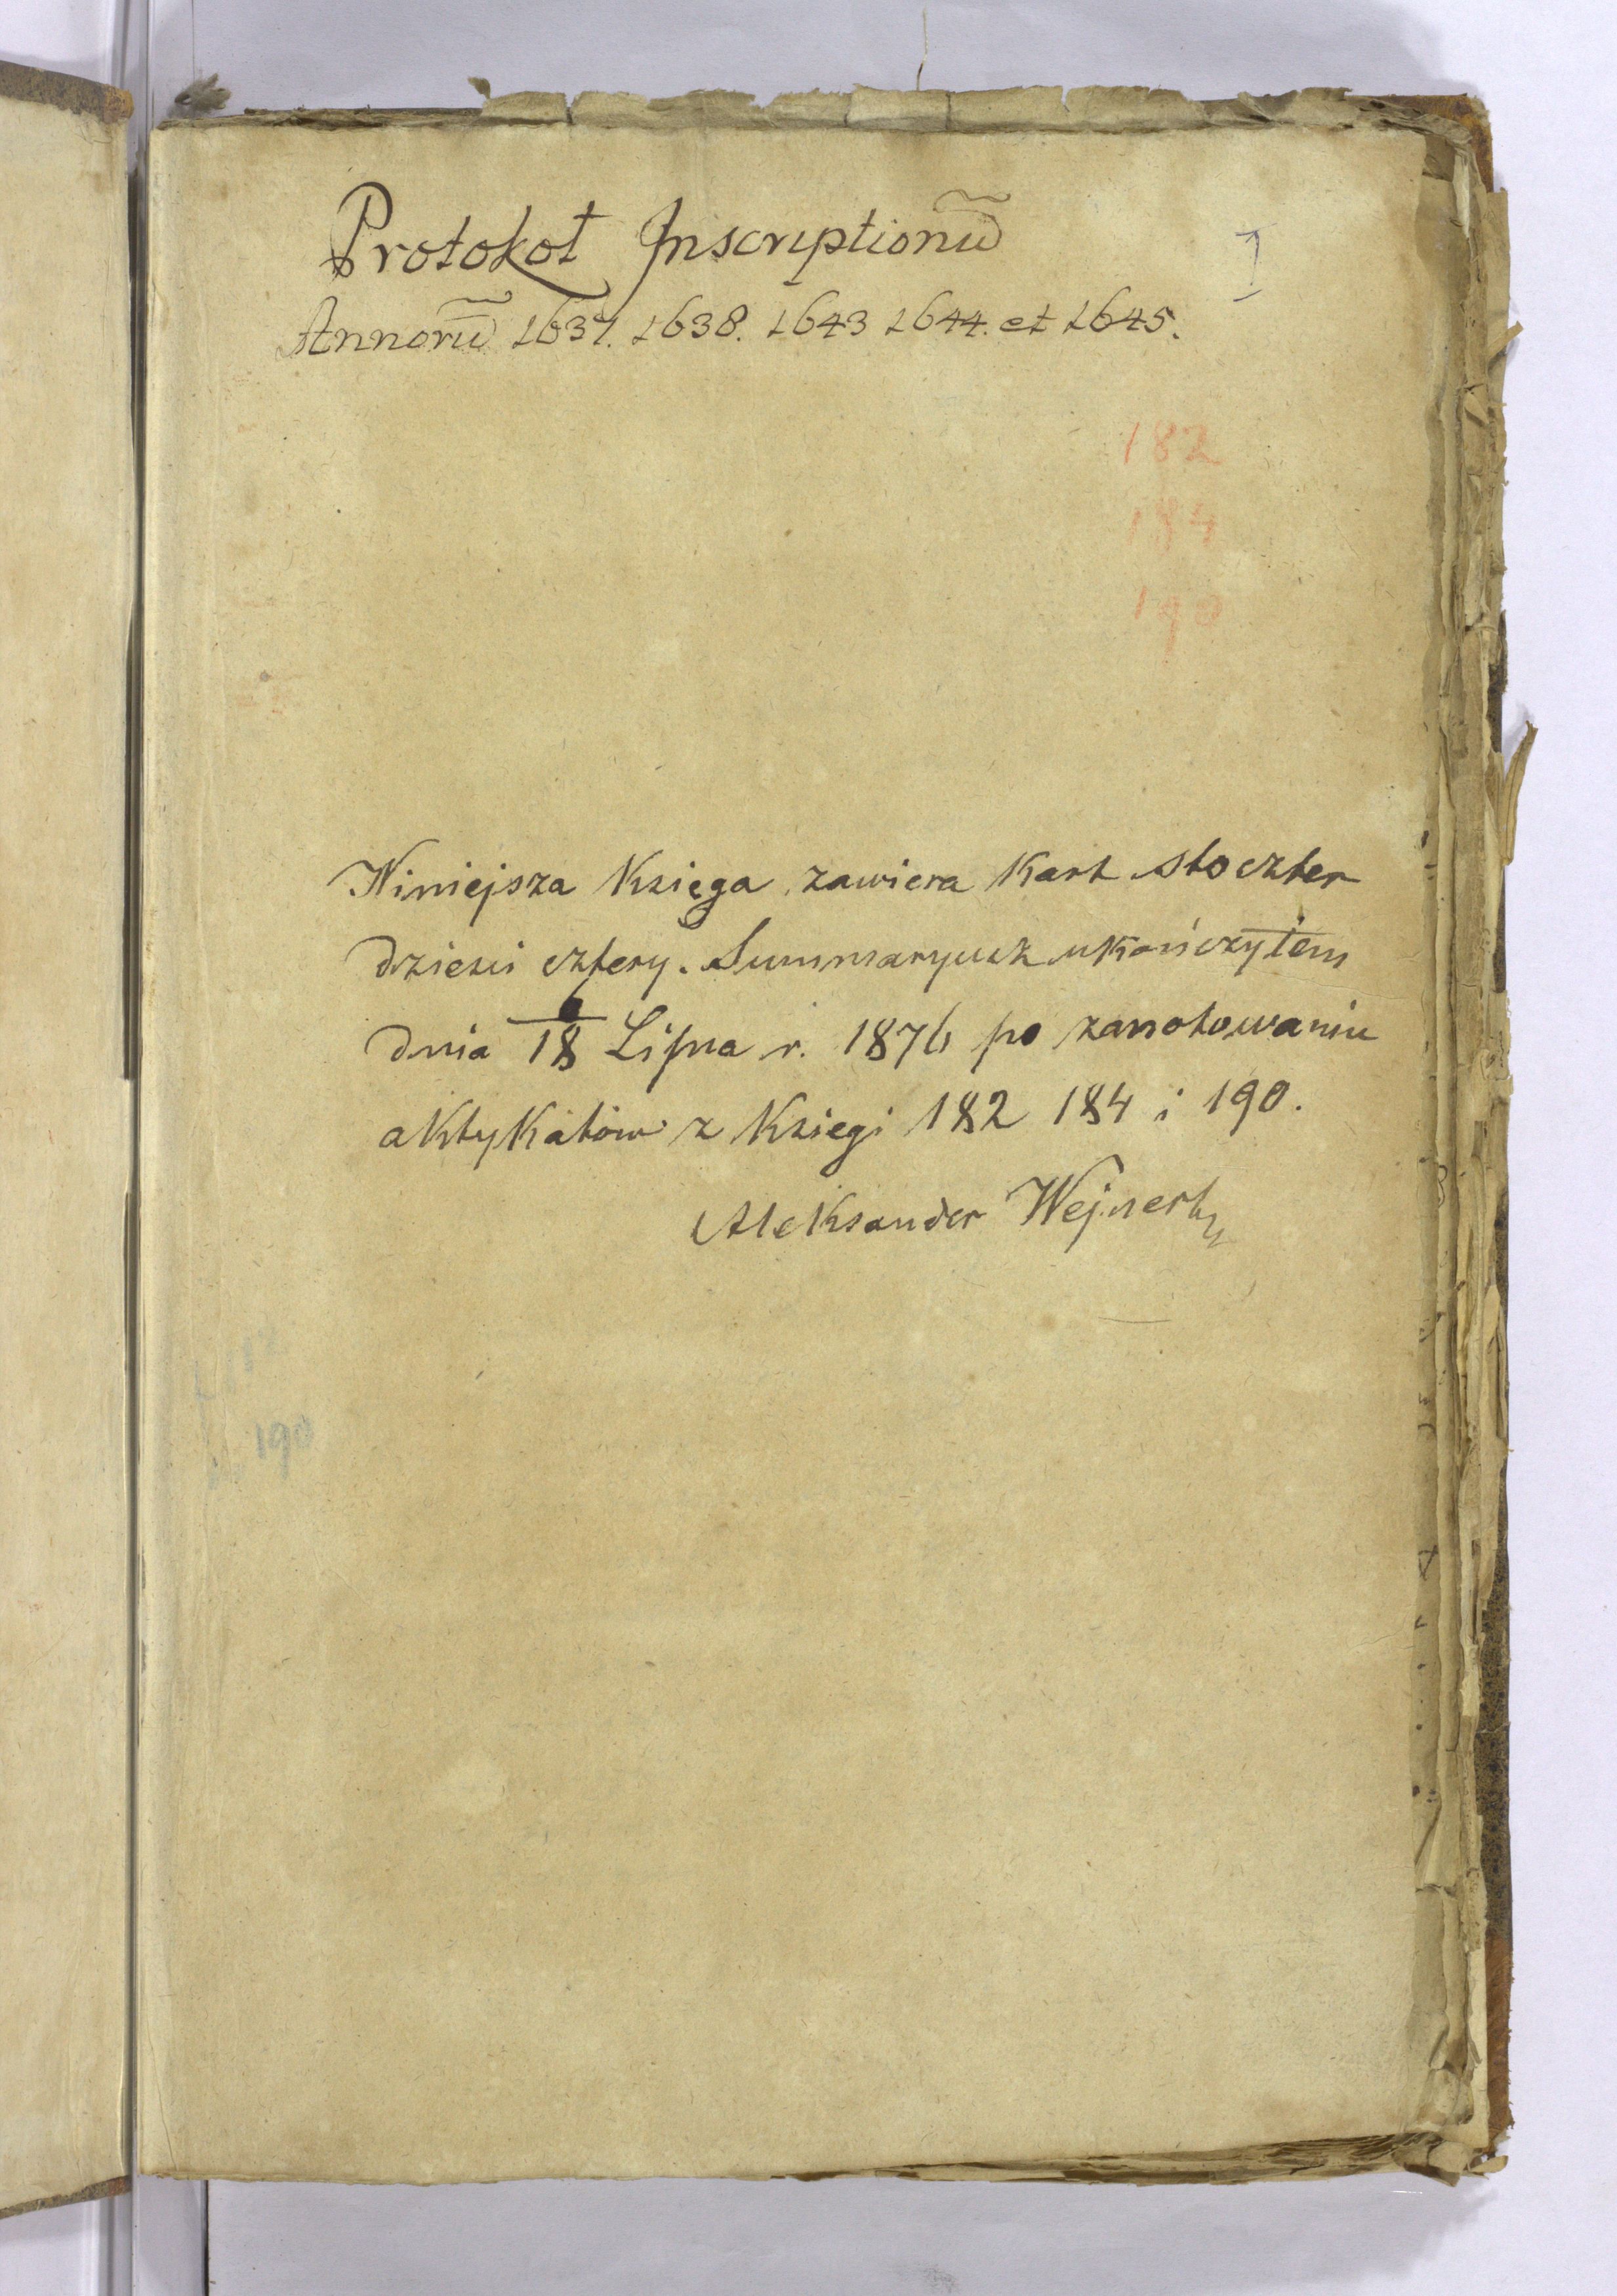 Protokoł Inscriptionũ
I
Annorũ 1637. 1638. 1643 1644. et 1645.
182
184
190
Niniejsza Księga zawiera Kart stoczter
dzieści cztery. Summaryusz ukończyłem
dnia 6/18 Lipca r. 1876 po zanotowaniu
aktykatów z Księgi 182 184 i 190.
Aleksander Wejnert
190